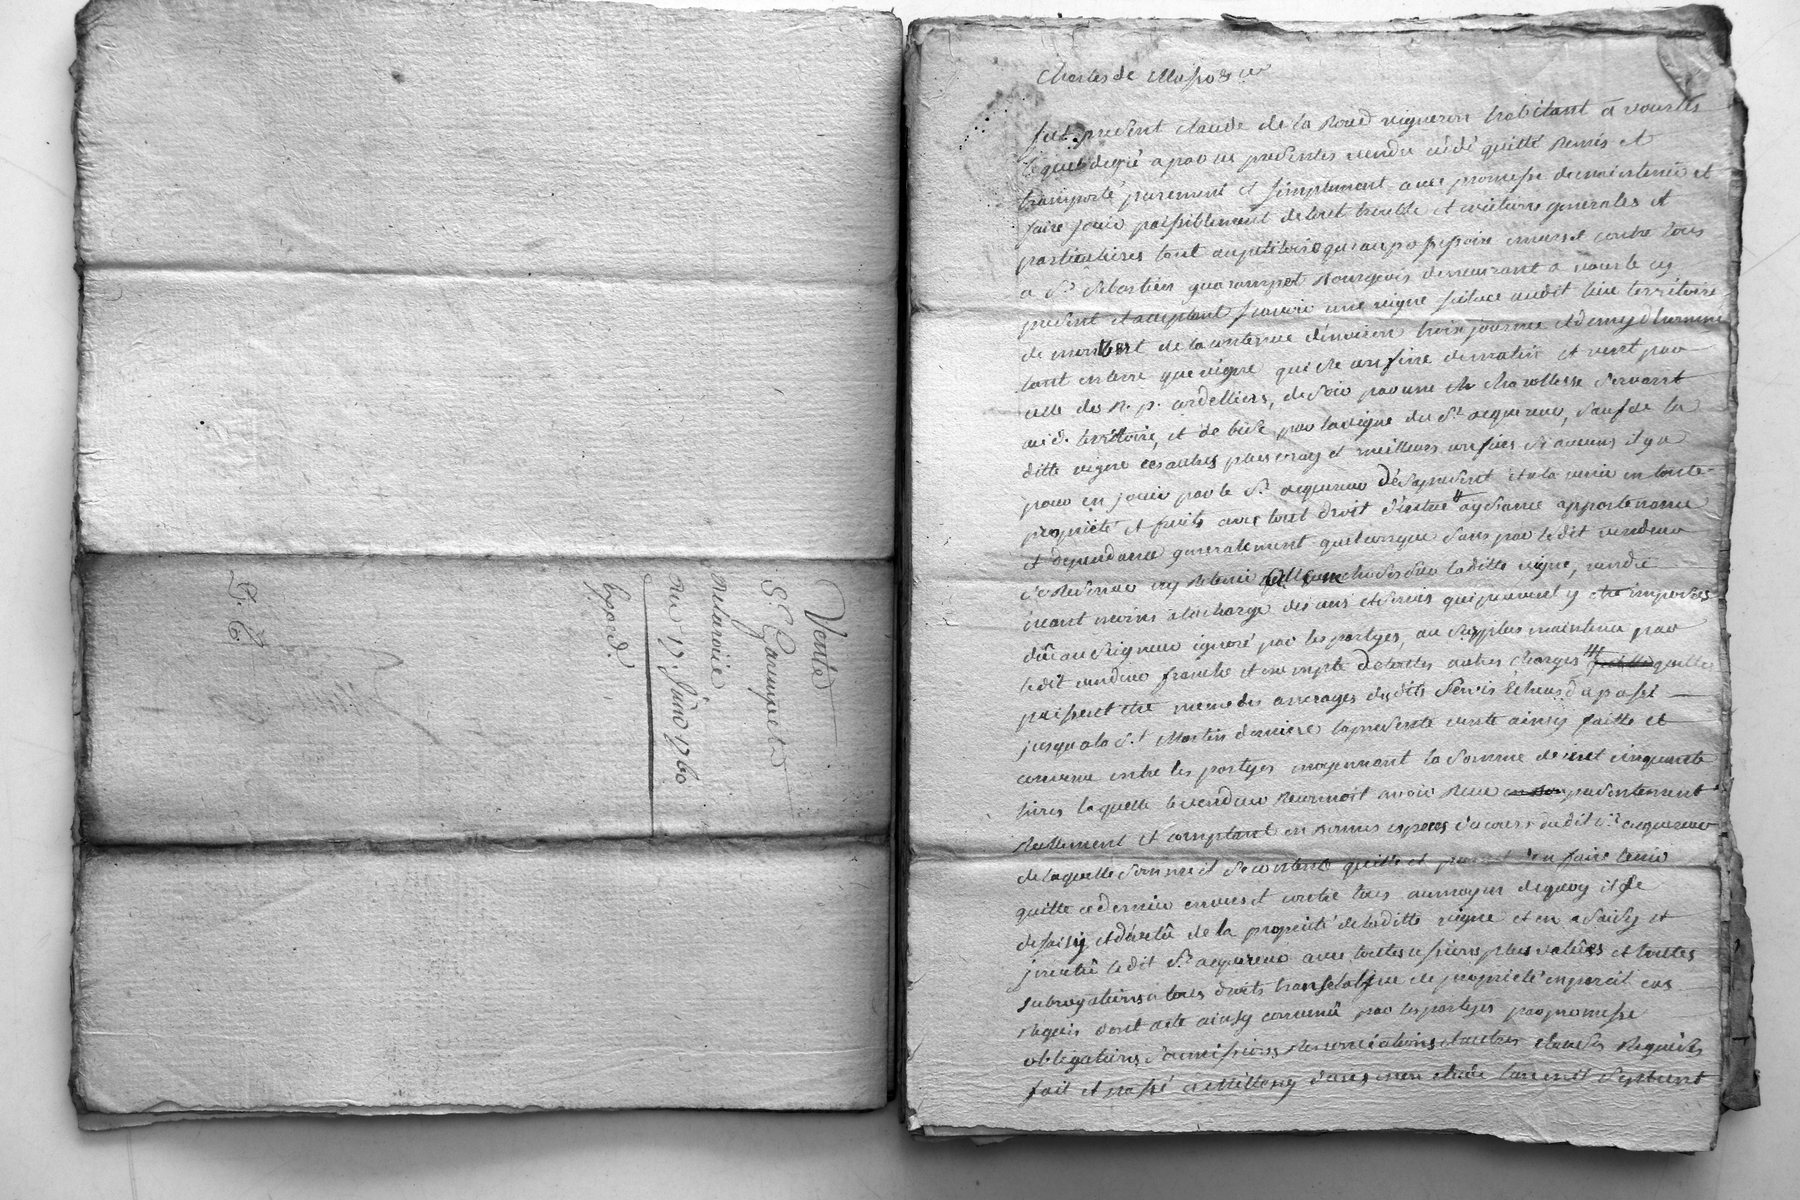 Vente
S. Garumpel
notariée
du 17. Juin 1760
Charles de
fut present claude de la Roue vigneron habitant à vourles
lequel degré a par ces presentes vendu cedé quitté Remis et
transporté purement et simplement avec promesse de maintenir et
faire jouir paisiblement de tout trouble et evictions generales et
particulieres tant au petitoire qu'au possessoire envers et contre tous
a Sr. Sebastien Bourgeois demeurant a vourle cy
present et acceptant scavoir une vigne scituee audit lieu territoire
de de la contenue d'environ trois journes et demy d'homme
tant en terre que vigne qui de matin et vent par
celle des R. p. cordelliers, de soir par une charollesse servant
aud. territoire, et de bize par la vigne du Sr. acquereur, sauf de la
ditte vigne ses autres plus vray et meilleurs confins si aucuns il y a
pour en jouir par le Sr. acquereur dés apresent et a la venir en toute
proprieté et fruits avec tout droit d'entrée aysance appartenance
et dependance generalement quelconque sans par ledit vendeur
se Reserver ny Retenir choses sur laditte vigne, vendue
neant moins a la charge des cens et servis qui peuvent y etre imposés
dûs au Seigneur ignoré par les partyes, au surplus maintenue par
ledit vendeur franche et exempte de toutes autres charges quelles
puissent etre meme des arrerages desdits servis échus du passé
jusqua la St. Martin derniere la presente vente ainsy faitte et
convenue entre les partyes moyennant la somme de cent cinquante
livres laquelle le vendeur Reconnoit avoir Recue presentement
Reellement et comptant en bonnes especes d'acours dudit Sr. acquereur
de laquelle somme il se contente quitte et promet l'en faire tenir
quitte ce dernier envers et contre tous au moyen de quoy il se
desaisy et dévetû de la proprieté de laditte vigne et en a saisy et
investû ledit Sr. acquereur avec toutes cessions plus valües et toutes
subrogations a tous droits translatif de proprieté en pareil cas
Requis dont acte ainsy convenû par les partyes par promesse
obligations soumissions Renonciations et autres clauses Requises
fait et passé a Milleny dans mon etude l'an mil Septcent